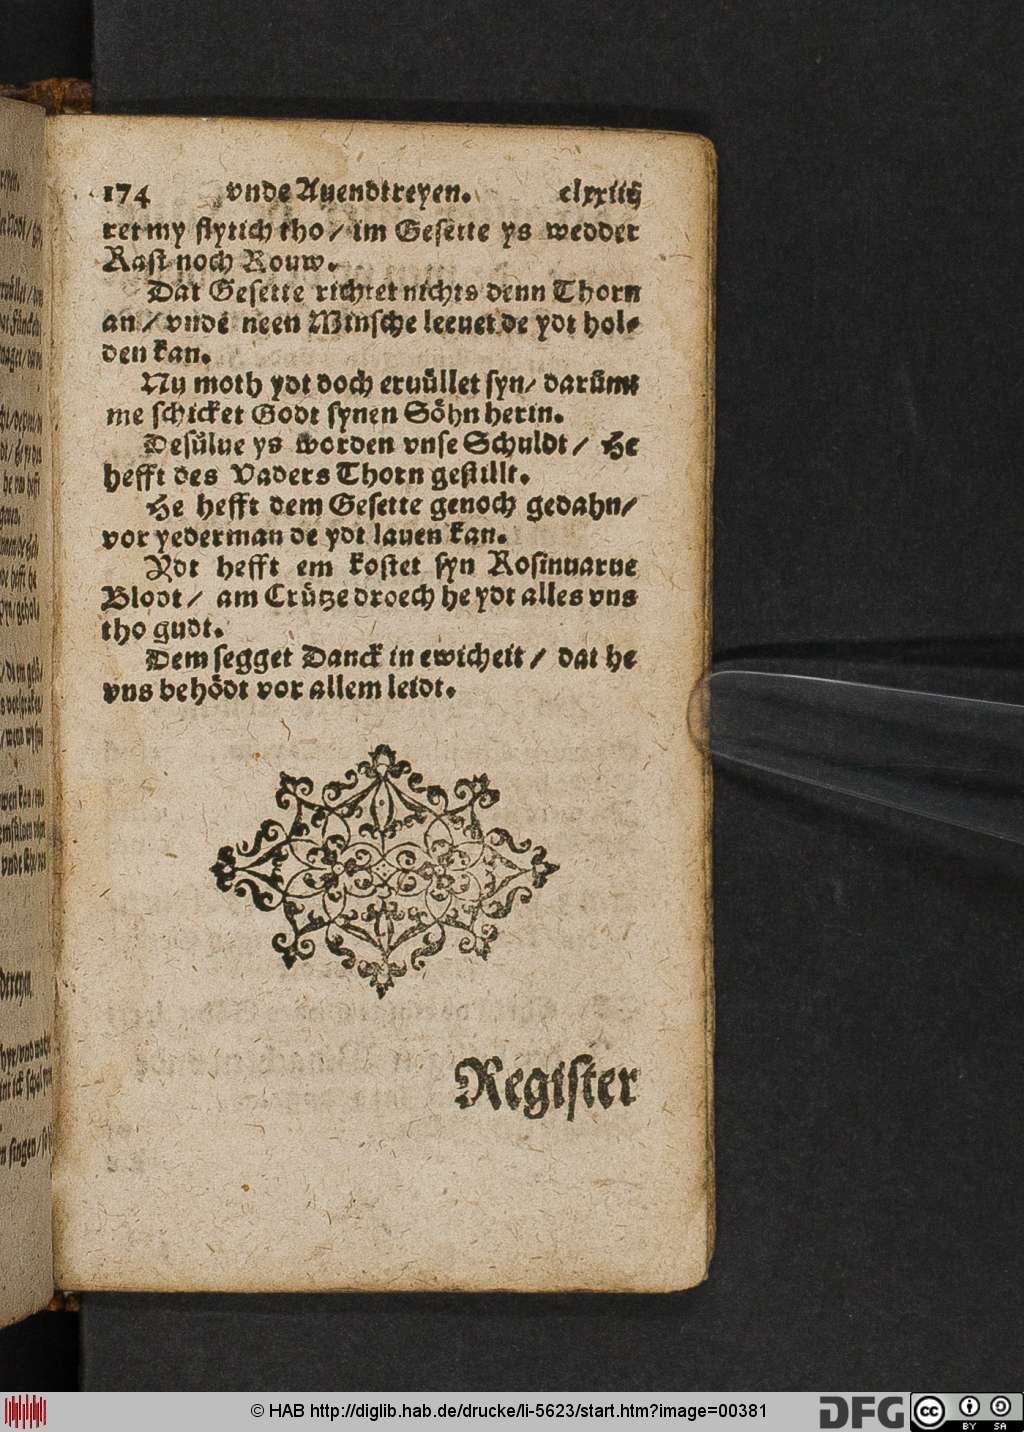 174 vnde Auendtreyen. clxxiiij
ret my flytich tho / im Gesette ys wedder
Rast noch Rouw.
Dat Gesette richtet nichts denn Thorn
an / vnde neen Minsche leeuet de ydt hol-
den kan.
Nu moth ydt doch eruüllet syn / darüm
me schicket Godt synen Söhn herin.
Desülue ys worden vnse Schuldt / He
hefft des Vaders Thorn gestillt.
He hefft dem Gesette genoch gedahn /
vor yederman de ydt lauen kan.
Ydt hefft em kostet syn Rosinuarue
Blodt / am Crütze droech he ydt alles vns
tho gudt.
Dem segget Danck in ewicheit / dat he
vns behödt vor allem leidt.
Register
© HAB http://diglib.hab.de/drucke/li-5623/start.htm?image=00381
DFG
cc BY SA